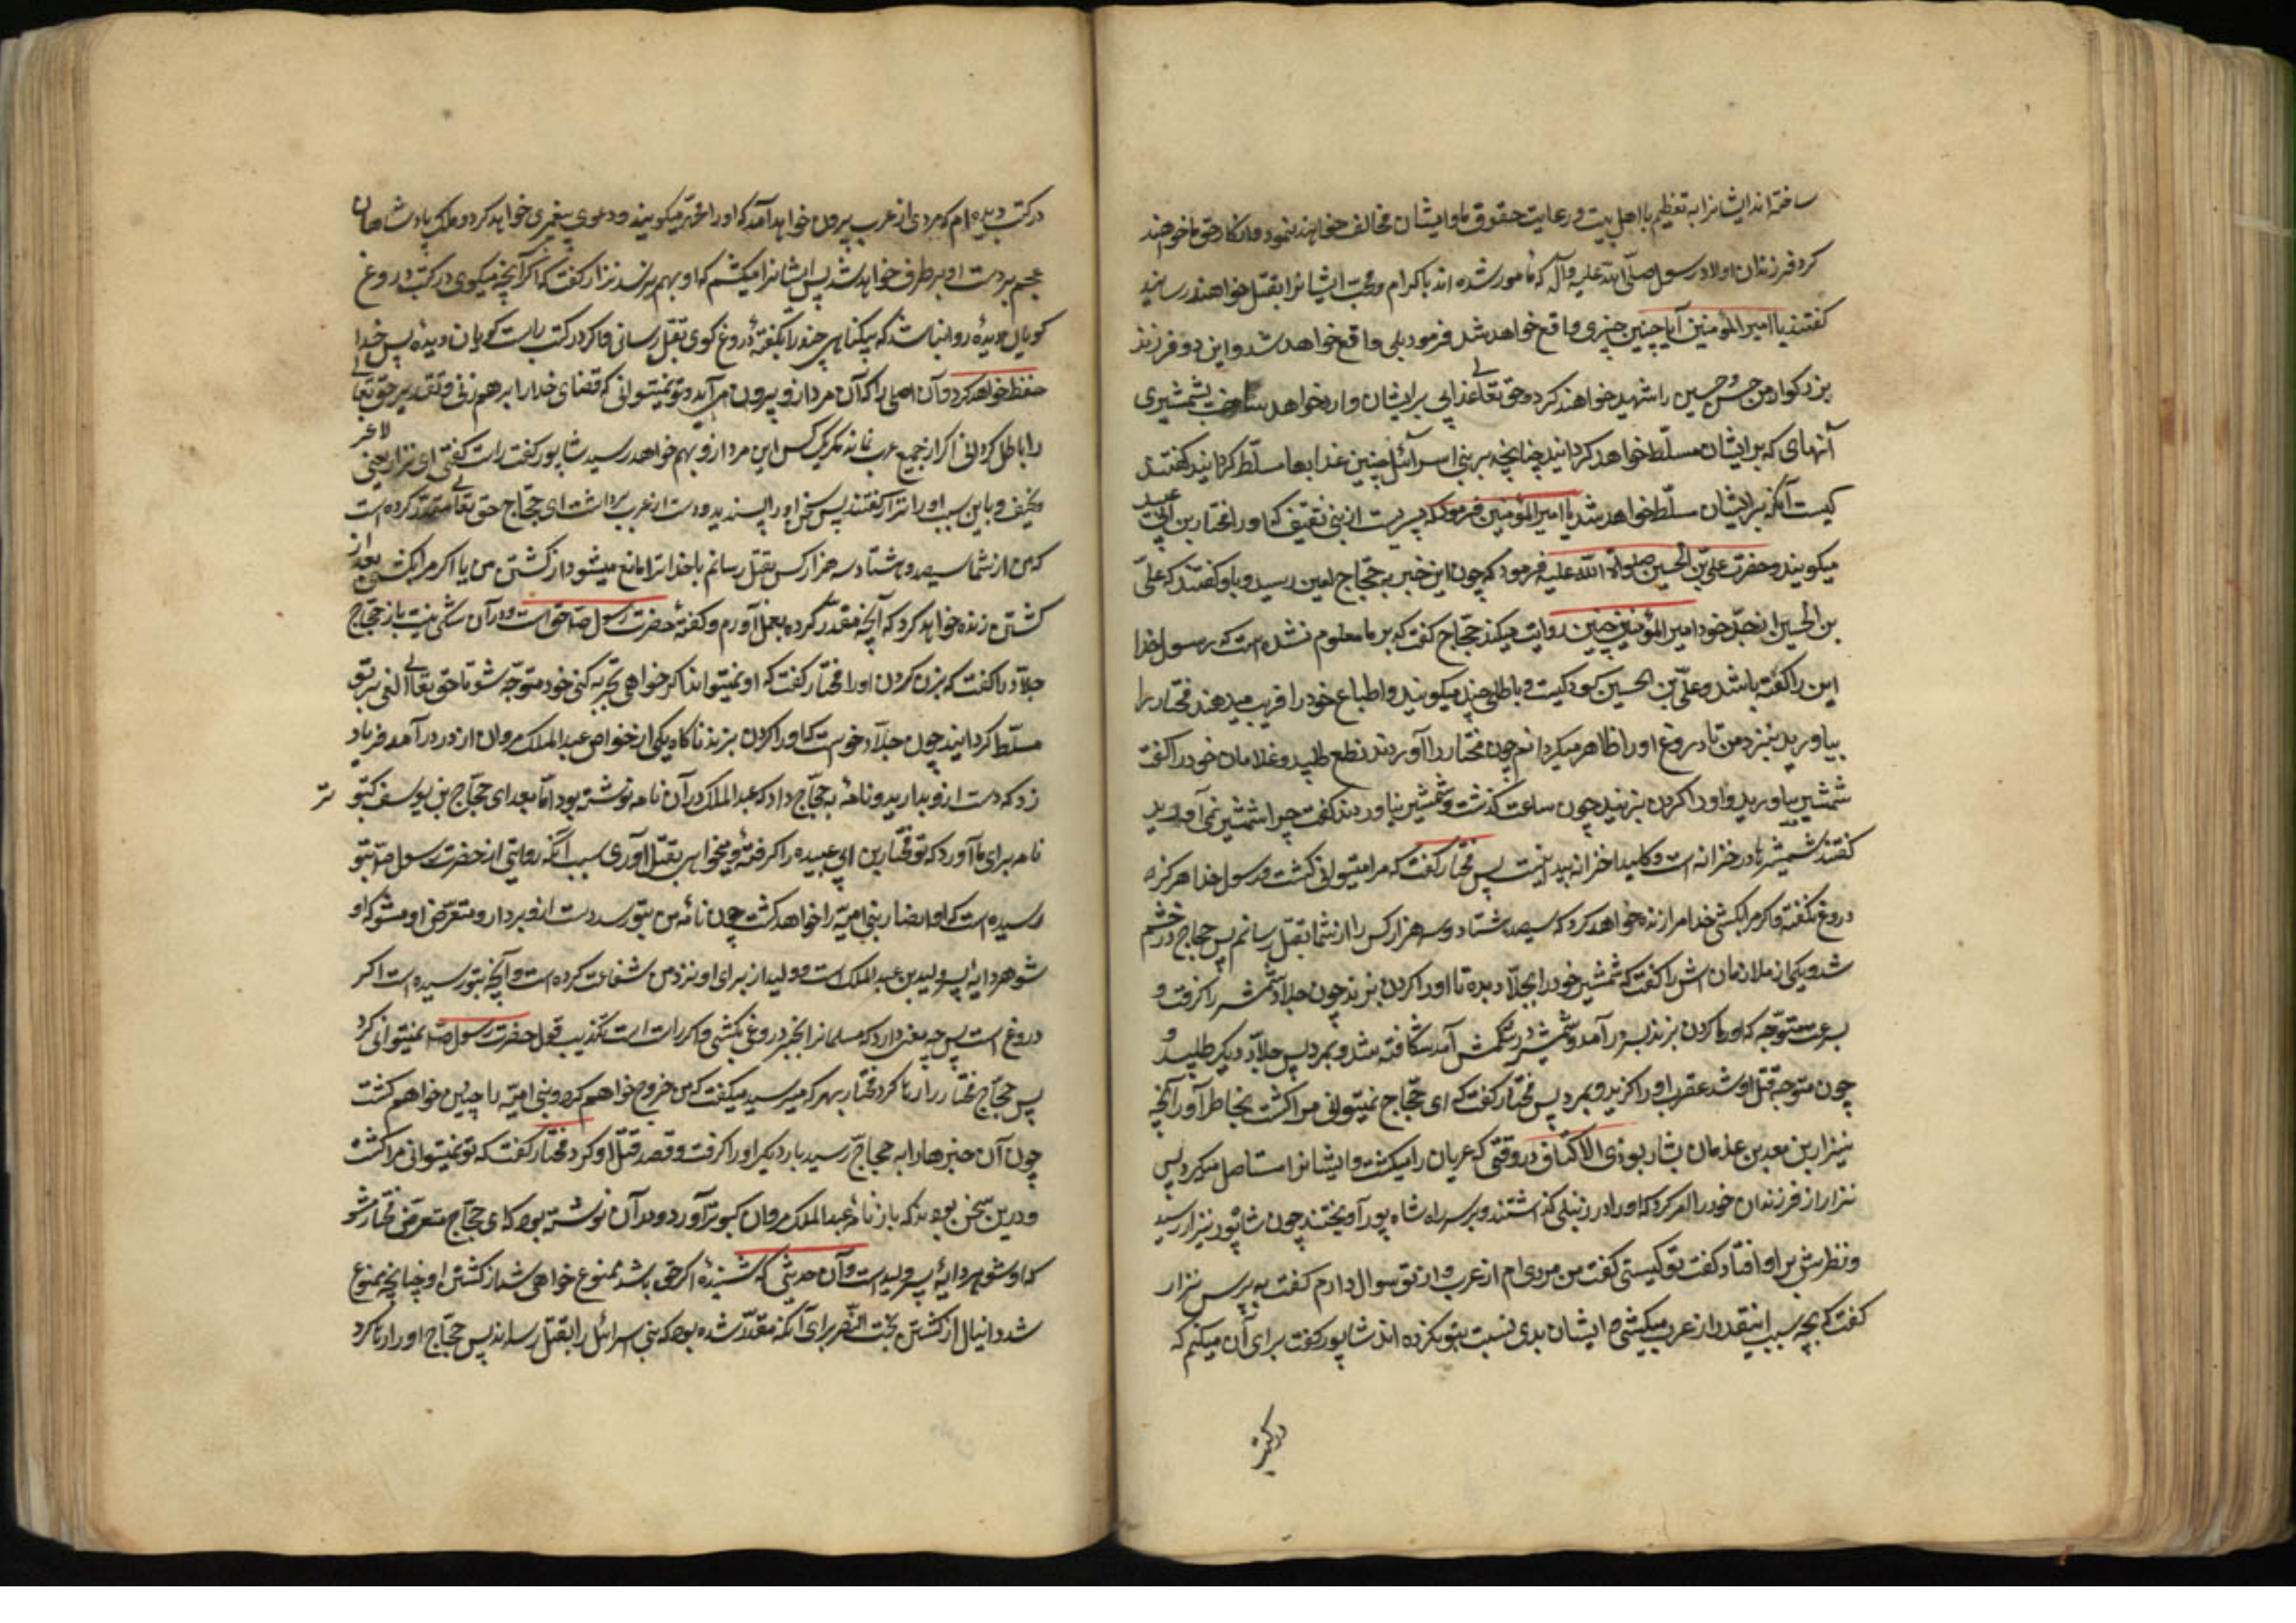 ساخته‌اند ایشانرا به تعظیم ما اهل بیت و رعایت حقوق ما و ایشان مخالف خواهند نمود و انکار حق ما خواهند
کرد فرزندان اولاد رسول صلی الله علیه و آله که مامور شده‌اند باکرام و محبت ایشانرا بقتل خواهند رسانید
گفتند یا امیر المؤمنین آیا چنین چیزی واقع خواهد شد فرمود بلی واقع خواهد شد و این دو فرزند
بزرکوار من حسن و حسین را شهید خواهند کرد و حق تعالی عذابی بر ایشان وارد خواهد ساخت بشمشیری
آنهای که بر ایشان مسلط خواهد کردانید چنانچه بر بنی اسرائیل چنین عذابها مسلط کردانید گفتند
کیست آنکه بر ایشان مسلط خواهد شد یا امیر المؤمنین فرمود که پسریست از بنی ثقیف که او را مختار بن ابی عبید
میکویند و حضرت علی بن الحسین صلوات الله علیه فرمود که چون این خبر به حجاج لعین رسید و باو کفتند که علی
بن الحسین از جد خود امیر المؤمنین چنین روایت میکند حجاج کفت که بر ما معلوم نشده است که رسول خدا
این را کفته باشد و علی بن الحسین کودکیست و باطلی چند میکویند و اطباع خود را فریب میدهند مختار را
بیاورید بنزد من تا دروغ او را ظاهر میکردانم چون مختار را آوردند نطع طلبید و غلامان خود را کفت
شمشیر بیاورید و او را کردن بزنید چون ساعت کذشت و شمشیر نیاوردند کفت چرا شمشیر نمی آورید
کفتند شمشیرها در خزانه است و کلید خزانه پیدا نیست پس مختار کفت که مرا نمیتوانی کشت و رسول خدا هرکز
دروغ نکفته و اکر مرا بکشی خدا مرا زنده خواهد کرد که سیصد و هشتاد و سه هزار کس را از شما بقتل رسانم پس حجاج در خشم
شد و یکی از ملازمان اش را کفت که شمشیر خود را بجلاد بده تا او را کردن بزند چون جلاد شمشیر را کرفت و
بسرعت متوجه که او را کردن بزند بسر در آمد و شمشیر در شکمش آمد شکافته شد و بمرد پس جلاد دیکر طلبید و
چون متوجه قتل او شد عقرب او را کزید و بمرد پس مختار کفت که ای حجاج نمیتوانی مرا کشت بخاطر آور آنچه
نیزار بن معد بن عدنان بشاپور ذی الاکتاف در وقتی که عربان را میکشت و ایشانرا استاصل میکرد پس
نزار از فرزندان خود را امر کرد که او را در زنبیلی کذاشتند و بر سر راه شاه پور آویختند چون شاپور بنزار رسید
و نظرش بر او افتاد کفت تو کیستی کفت من مردی ام از عرب و از تو سوال دارم کفت به پرس نزار
کفت که بچه سبب اینقدر از عرب میکشی و ایشان بدی نسبت بتو نکرده اند شاپور کفت برای آن میکنم که
در کتب
در کتب دیده ام که مردی از عرب بیرون خواهد آمد که او را محمد میکویند و دعوی پیغمبری خواهد کرد و ملک پادشاهان
عجم بر دست او بر طرف خواهد شد پس ایشانرا میکشم که او بهم نرسد نزار کفت که اکر آنچه میکوی در کتب دروغ
کویان دیده روا نباشد که بیکناهی چند را بکفته دروغ کوی بقتل رسانی و اکر در کتب راست کویان دیده پس خدا
حفظ خواهد کرد و آن اصلی را که آن مرد از و بیرون می آید و تو نمیتوانی که قضای خدا را برهم زنی و تقدیر حق تعالی
را باطل کردانی اکر از جمیع عرب نماند مکر یک کس این مرد از و بهم خواهد رسید شاپور کفت راست کفتی ای نزار یعنی لاغر
نحیف و باین سبب او را نزار کفتند پس سخن او را پسندید و دست از عرب برداشت ای حجاج حق تعالی مقدر کرده است
که من از شما سیصد و هشتاد سه هزار کس بقتل رسانم یا خدا ترا مانع میشود از کشتن من یا اکر مرا بکشی بعد از
کشتن زنده خواهد کرد که آنچه مقدر کرده بعمل آورم و کفته حضرت رسول ص حق است و در آن شکی نیست باز حجاج
جلاد را کفت که بزن کردن او را مختار کفت که او نمیتواند اکر خواهی تجربه کنی خود متوجه شو تا حق تعالی افعی بر تو
مسلط کردانید چون جلاد خواست که او را کردن بزند ناکاه یکی از خواص عبد الملک مروان از در در آمد فریاد
زد که دست از و بدارید و نامه به حجاج داد که عبد الملک در آن نامه نوشته بود اما بعد ای حجاج بن یوسف کبوتر
نامه برای ما آورد که تو مختار بن ابی عبیده را کرفته و میخواهی بقتل آوری سبب آنکه روایتی از حضرت رسول ص بتو
رسیده است که او انصار بنی امیه را خواهد کشت چون نامه من بتو رسد دست از و بردار و متعرض او مشو که او
شوهر دایه پسر ولید بن عبد الملک است و ولید از برای او نزد من شفاعت کرده است و آنچه بتو رسیده است اکر
دروغ است پس چه معنی دارد که مسلمانرا بخبر دروغی بکشی و اکر راست است تکذیب قول حضرت رسول ص نمیتوانی کرد
پس حجاج مختار را رها کرد مختار بهر که میرسید میکفت که من خروج خواهم کرد و بنی امیه را چنین خواهم کشت
چون آن خبرها را به حجاج رسید بار دیکر او را کرفت و قصد قتل او کرد مختار کفت که تو نمیتوانی مرا کشت
و درین سخن بودند که باز نامه عبد الملک مروان کبوتر آورد و در آن نوشته بود که ای حجاج متعرض مختار مشو
که او شوهر دایه پسر ولید است و آن حدیثی که شنیدهٔ اکر حق باشد ممنوع خواهی شد از کشتن او چنانچه ممنوع
شد دانیال از کشتن بخت النصر برای آنکه مقدر شده بود که بنی اسرائیل را بقتل رساند پس حجاج او را رها کرد